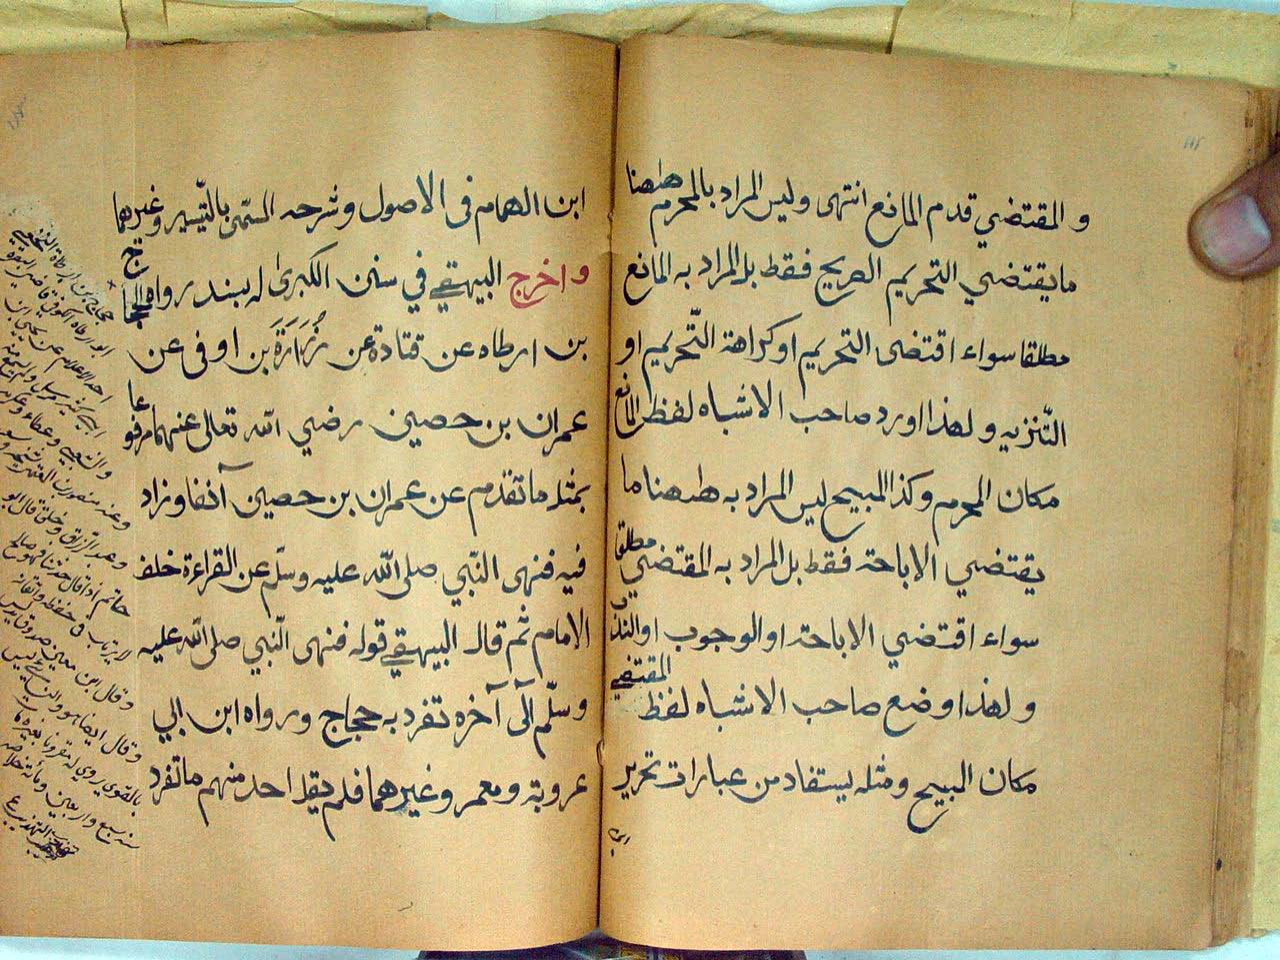 و المقتضي قدم المانع انتهى وليس المراد بالمحرم ههنا
ما يقتضي التحريم الصريح فقط بل المراد به المانع
مطلقا سواء اقتضى التحريم او كراهة التّحريم او
التّنزيه ولهذا اورد صاحب الاشباه لفظ المانع
مكان المحرم وكذا المبيح ليس المراد به ههنا ما
يقتضي الاباحة فقط بل المراد به المقتضي مطلقا
سواء اقتضي الاباحة او الوجوب او الندب
ولهذا وضع صاحب الاشباه لفظ المقتضي
مكان المبيح ومثله يستفاد من عبارات تحرير
ابن
ابن الهمام في الاصول وشرحه المسّمى بالتّيسير وغيرهما
واخرج البيهقي في سنن الكبرى له بسند رواه الحجاج
بن ارطاه عن قتادة عن زُرَارَةَ بن اوفى عن
عمران بن حصين رضي الله تعالى عنهما مرفوعا
بمثل ما تقدم عن عمران بن حصين آنفا وزاد
فيه فنهى النّبي صلى الله عليه وسلّم عن القراءة خلف
الامام ثم قال البيهقي قوله فنهى النّبي صلى الله عليه
وسلّم الى آخره تفرد به حجاج ورواه ابن ابي
عروبة ومعمر وغيرهما فلم يقل احد منهم ما تفرد
حجاج بن ارطاة النخعي
ابو ارطاه الكوفي قاضي البصرة
احد الاعلام عن يحيى بن
ابي كثير
والشعبي وعطاء وعكرمه
وعنه منصور بن المعتمر
وعبد الرزاق وخلق قال ابو
حاتم اذا قال حدثنا فهو صالح
لا يرتاب في حفظه واتقانه
وقال ابن معين صدوق يدلس
وقال ايضا هو والنسائي ليس
بالقوي يروي له مقرونا بغيره مات
سنة سبع واربعين ومائة خلاصة
تهذيب التهذيب